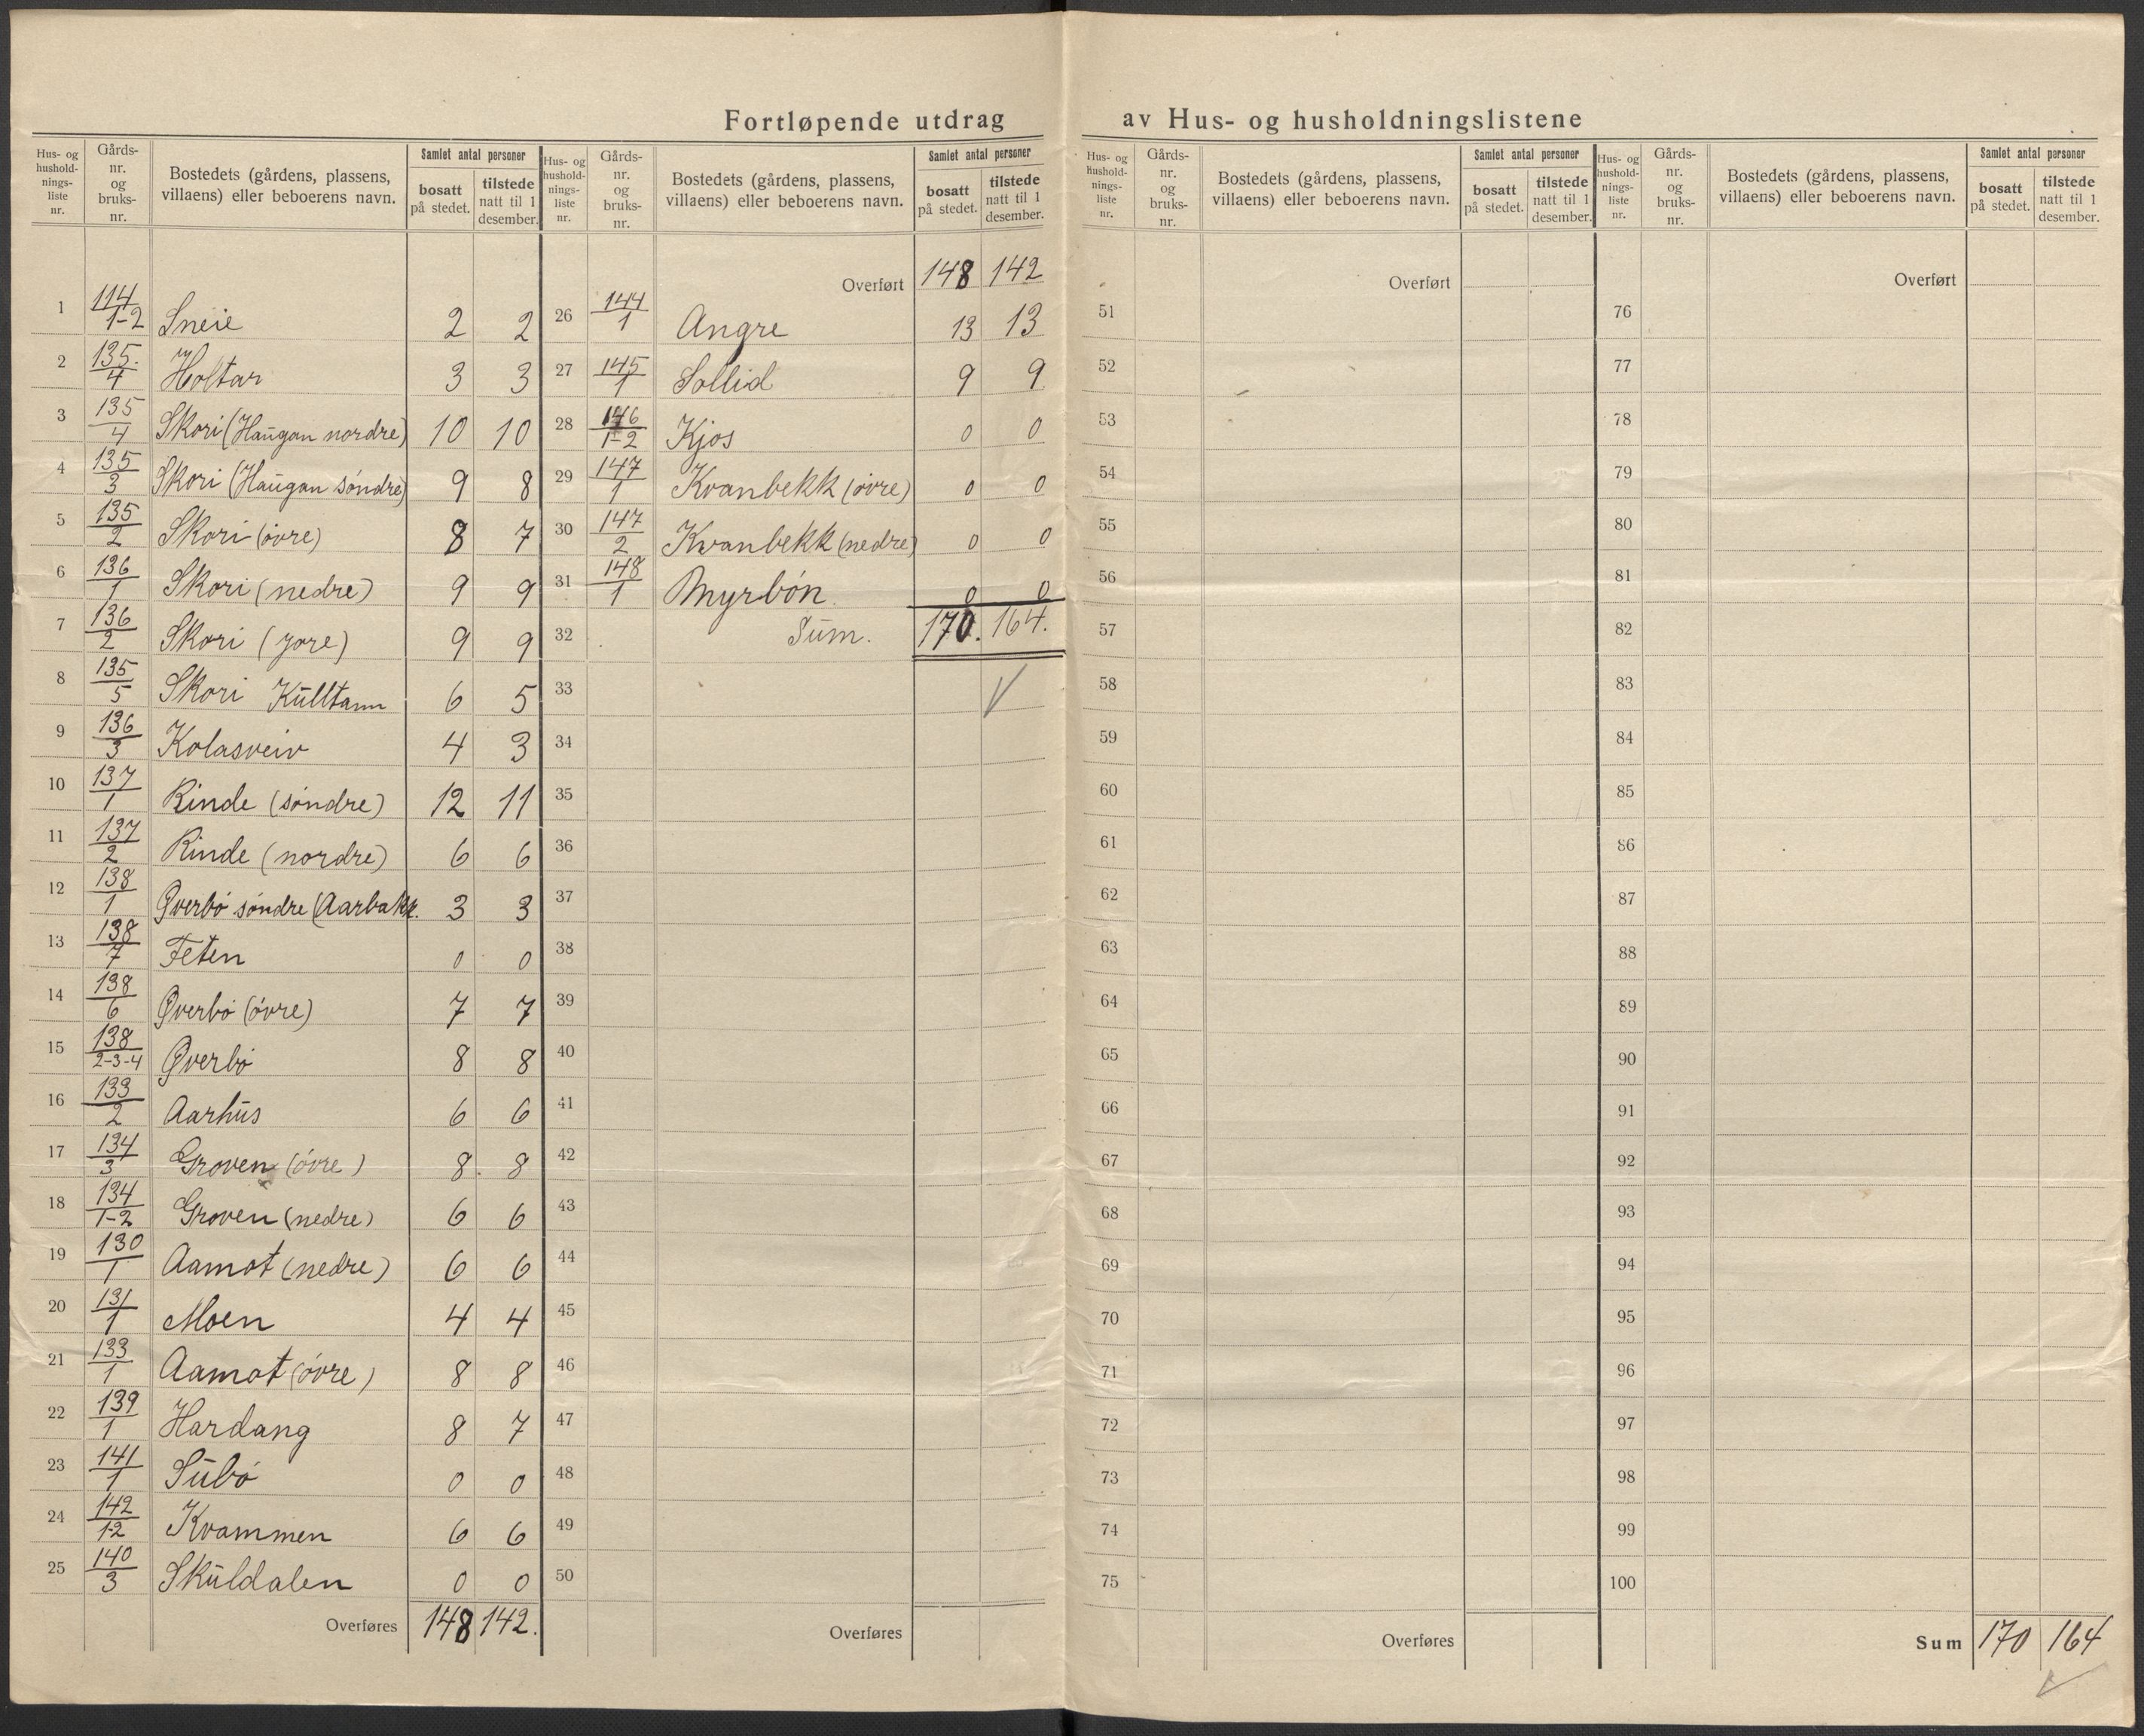 Fortløpende utdrag av Hus- og husholdningslistene
Hus- og hushold-nings-liste nr. | Gårds-nr. og bruks-nr. | Bostedets (gårdens, plassens, villaens) eller beboerens navn. | Samlet antal personer | bosatt på stedet. | tilstede natt til 1 desember.
1 114/1-2 Sneie 2 2
2 135/4 Holtar 3 3
3 135/4 Skori (Haugan nordre) 10 10
4 135/3 Skori (Haugan søndre) 9 8
5 135/2 Skori (øvre) 8 7
6 136/1 Skori (nedre) 9 9
7 136/2 Skori (jore) 9 9
8 135/5 Skori Kulltann 6 5
9 136/3 Kolasveiv 4 3
10 137/1 Rinde (søndre) 12 11
11 137/2 Rinde (nordre) 6 6
12 138/1 Øverbø søndre (Aarbakk. 3 3
13 138/7 Feten 0 0
14 138/6 Øverbø (øvre) 7 7
15 138/2-3-4 Øverbø 8 8
16 133/2 Aarhus 6 6
17 134/3 Groven (øvre) 8 8
18 134/1-2 Groven (nedre) 6 6
19 130/1 Aamot (nedre) 6 6
20 131/1 Moen 4 4
21 133/1 Aamot (øvre) 8 8
22 139/1 Hardang 8 7
23 141/1 Subø 0 0
24 142/1-2 Kvammen 6 6
25 140/3 Skuldalen 0 0
Overføres 148 142.
Hus- og hushold-nings-liste nr. | Gårds-nr. og bruks-nr. | Bostedets (gårdens, plassens, villaens) eller beboerens navn. | Samlet antal personer | bosatt på stedet. | tilstede natt til 1 desember.
Overført 148 142
26 144/1 Angre 13 13
27 145/1 Sollid 9 9
28 146/1-2 Kjos 0 0
29 147/1 Kvanbekk (øvre) 0 0
30 147/2 Kvanbekk (nedre) 0 0
31 148/1 Myrbøn 0 0
32 Sum. 170. 164.
33
34
35
36
37
38
39
40
41
42
43
44
45
46
47
48
49
50
Overføres
Hus- og hushold-nings-liste nr. | Gårds-nr. og bruks-nr. | Bostedets (gårdens, plassens, villaens) eller beboerens navn. | Samlet antal personer | bosatt på stedet. | tilstede natt til 1 desember.
Overført
51
52
53
54
55
56
57
58
59
60
61
62
63
64
65
66
67
68
69
70
71
72
73
74
75
Overføres
Hus- og hushold-nings-liste nr. | Gårds-nr. og bruks-nr. | Bostedets (gårdens, plassens, villaens) eller beboerens navn. | Samlet antal personer | bosatt på stedet. | tilstede natt til 1 desember.
Overført
76
77
78
79
80
81
82
83
84
85
86
87
88
89
90
91
92
93
94
95
96
97
98
99
100
Sum 170 164